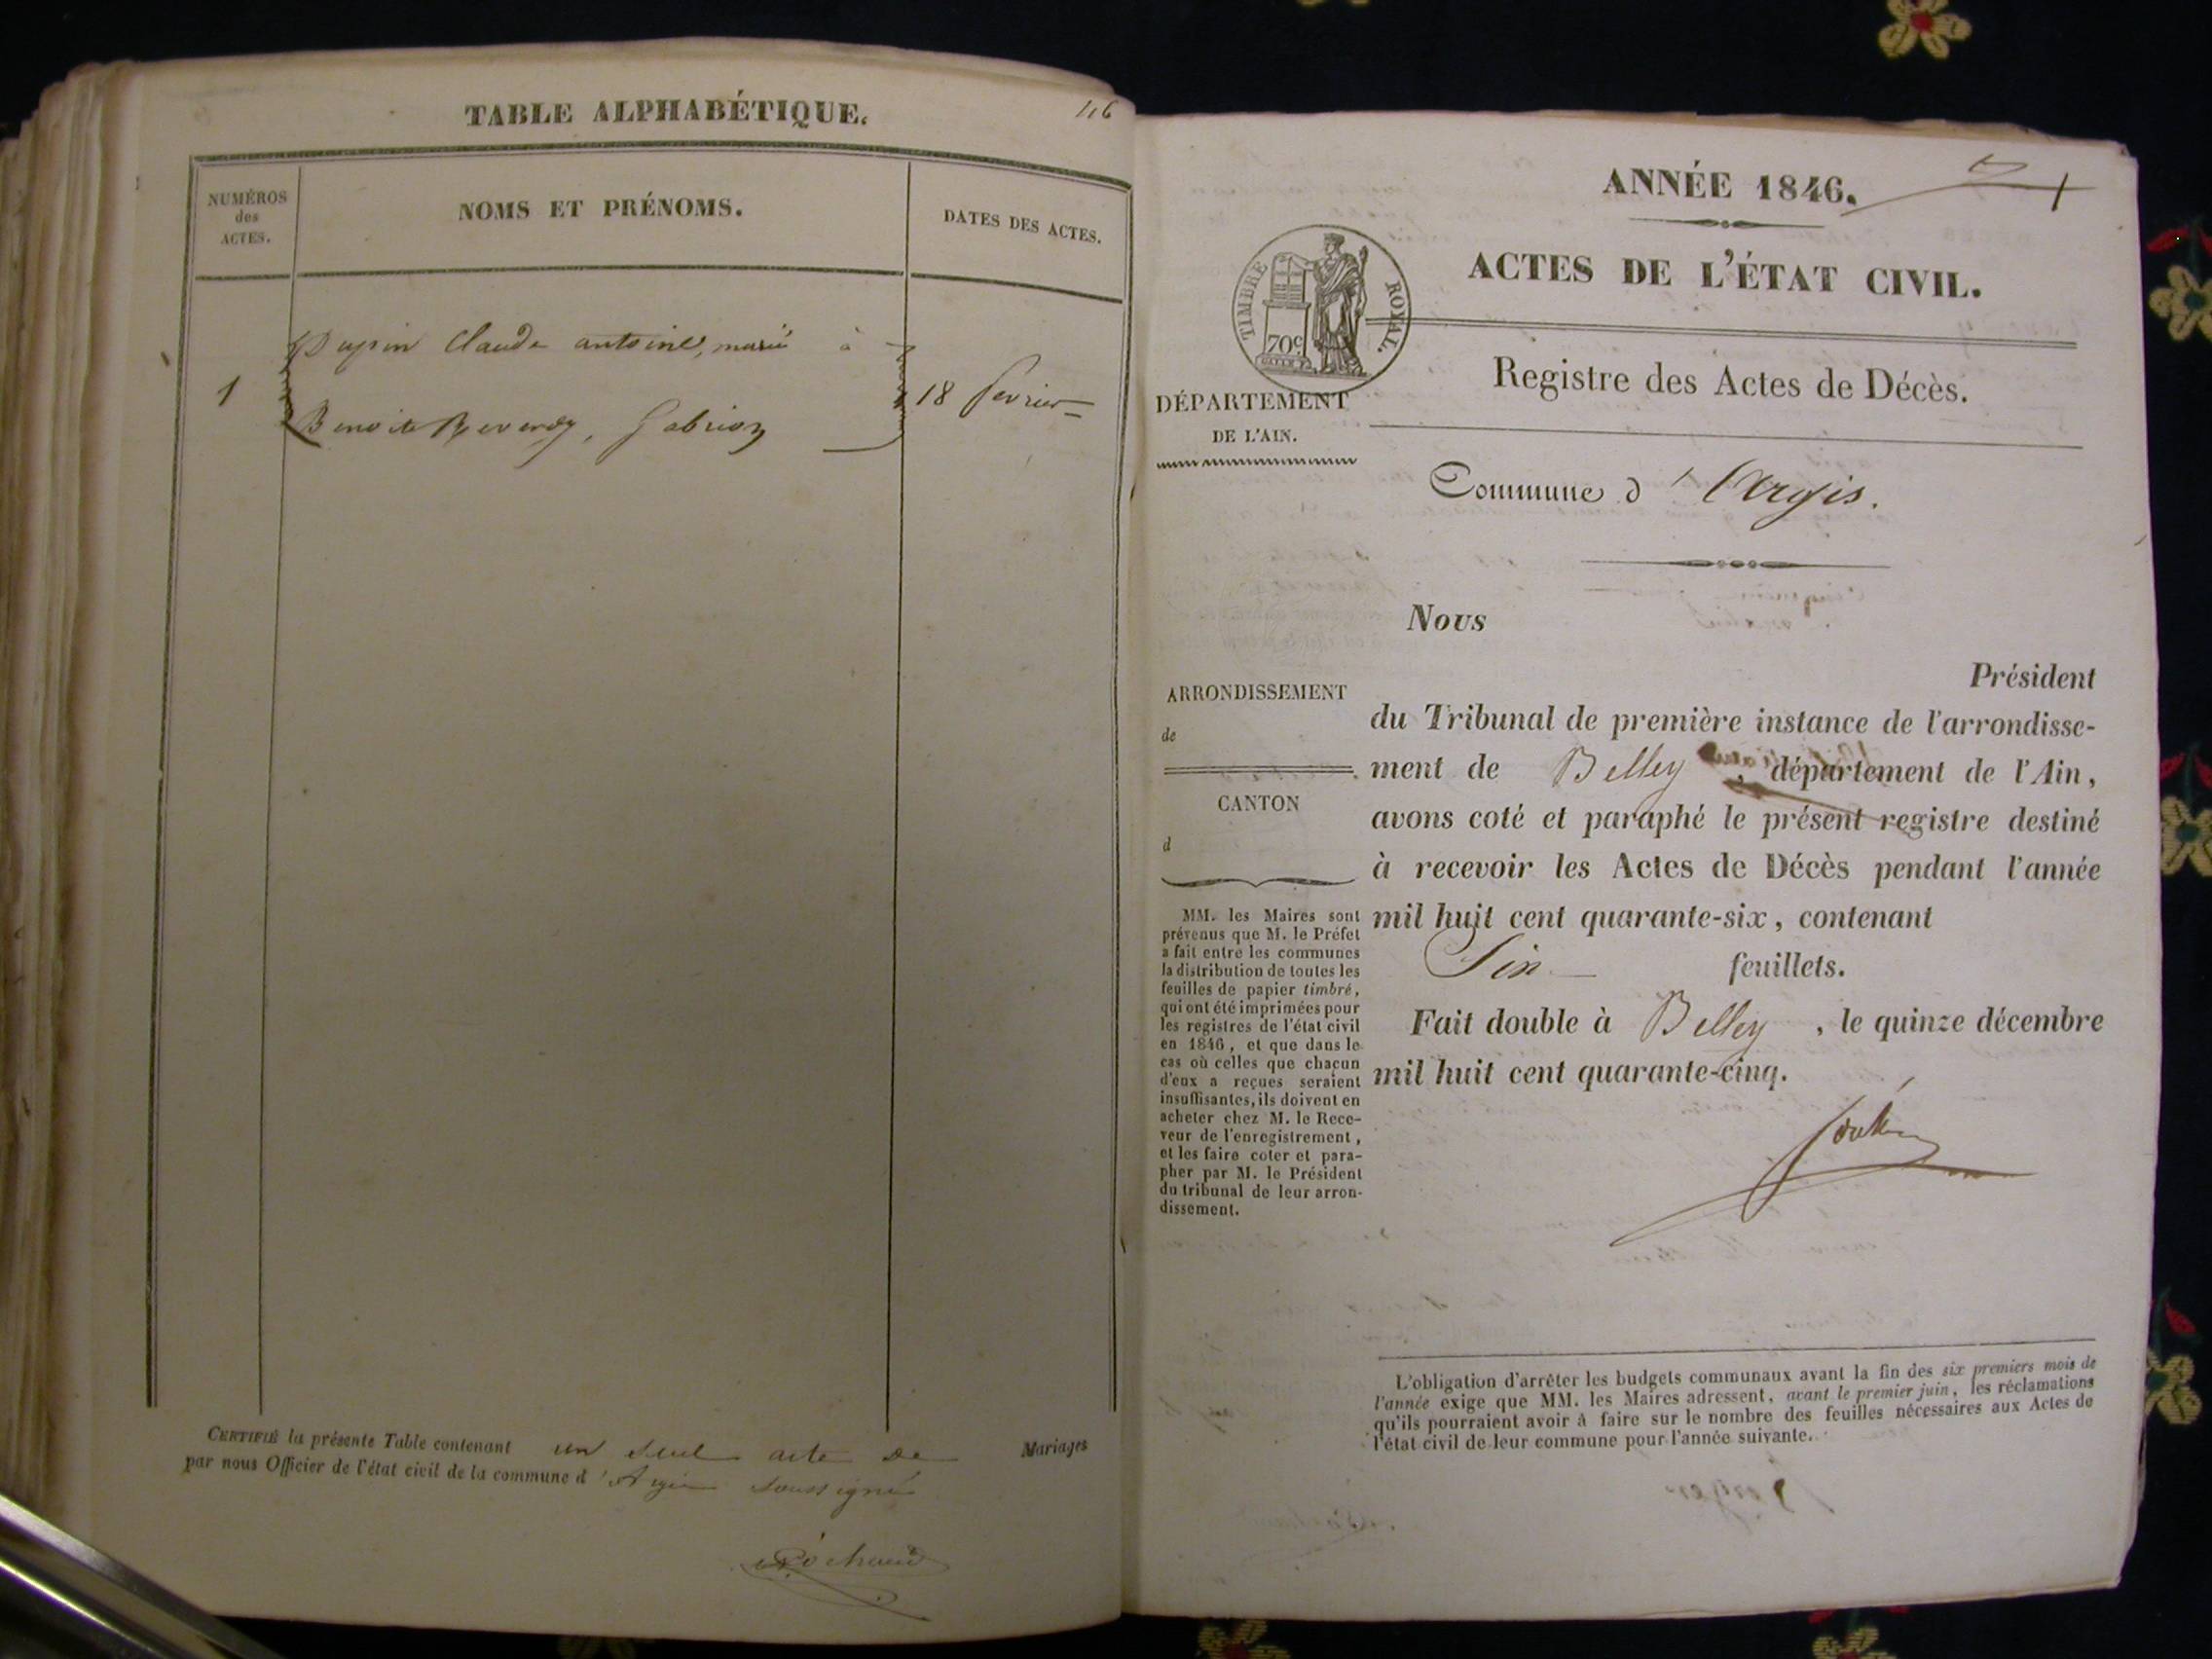 TABLE ALPHABÉTIQUE.
116
NUMÉROS
des
ACTES.
NOMS ET PRÉNOMS.
DATES DES ACTES.
Pupin Claude antoine, marié à
1
18 fevrier
Benoite
CERTIFIÉ la présente Table contenant un seul acte de Mariages
par nous Officier de l'état civil de la commune d'Argis soussigné
ANNÉE 1846.
ACTES DE L'ÉTAT CIVIL.
TIMBRE ROYAL.
70c
Registre des Actes de Décès.
DÉPARTEMENT
DE L'AIN.
Commune d'Argis.
Nous
Président
ARRONDISSEMENT
de
CANTON
d
du Tribunal de première instance de l'arrondisse-
ment de Belley, département de l'Ain,
avons coté et paraphé le présent registre destiné
à recevoir les Actes de Décès pendant l'année
mil huit cent quarante-six, contenant
Six feuillets.
Fait double à Belley, le quinze décembre
mil huit cent quarante-cinq.
MM. les Maires sont
prévenus que M. le Préfet
a fait entre les communes
la distribution de toutes les
feuilles de papier timbré,
qui ont été imprimées pour
les registres de l'état civil
en 1846, et que dans le
cas où celles que chacun
d'eux a reçues seraient
insuffisantes, ils doivent en
acheter chez M. le Rece-
veur de l'enregistrement,
et les faire coter et para-
pher par M. le Président
du tribunal de leur arron-
dissement.
L'obligation d'arrêter les budgets communaux avant la fin des six premiers mois de
l'année exige que MM. les Maires adressent, avant le premier juin, les réclamations
qu'ils pourraient avoir à faire sur le nombre des feuilles nécessaires aux Actes de
l'état civil de leur commune pour l'année suivante.